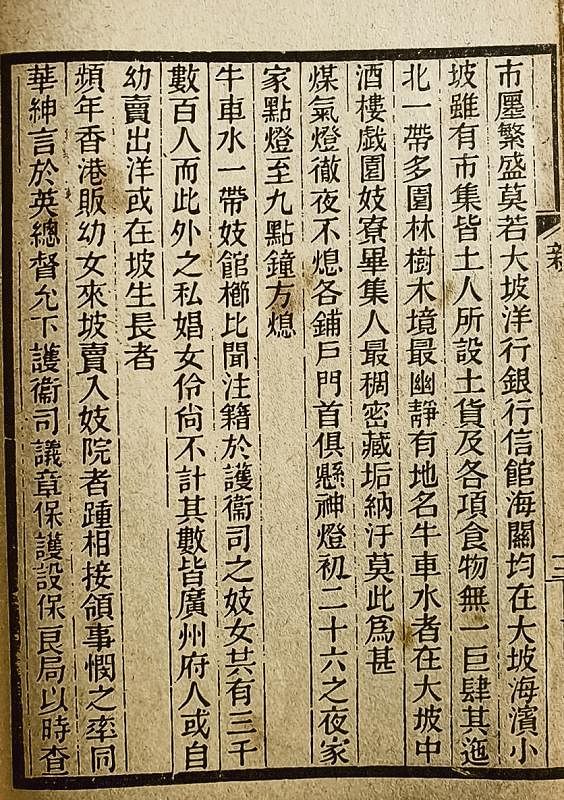 市廛繁盛莫若大坡洋行銀行信館海關均在大坡海濱小
坡雖有市集皆土人所設土貨及各項食物無一巨肆其迤
北一帶多園林樹木境最幽靜有地名牛車水者在大坡中
酒樓戲園妓寮畢集人最稠密藏垢納汙莫此爲甚
煤氣燈徹夜不熄各鋪戶門首俱懸神燈初二十六之夜家
家點燈至九點鐘方熄
牛車水一帶妓館櫛比聞注籍於護衛司之妓女共有三千
數百人而此外之私娼女伶尙不計其數皆廣州府人或自
幼賣出洋或在坡生長者
頻年香港販幼女來坡賣入妓院者踵相接領事憫之率同
華紳言於英總督允下護衛司議章保護設保良局以時查